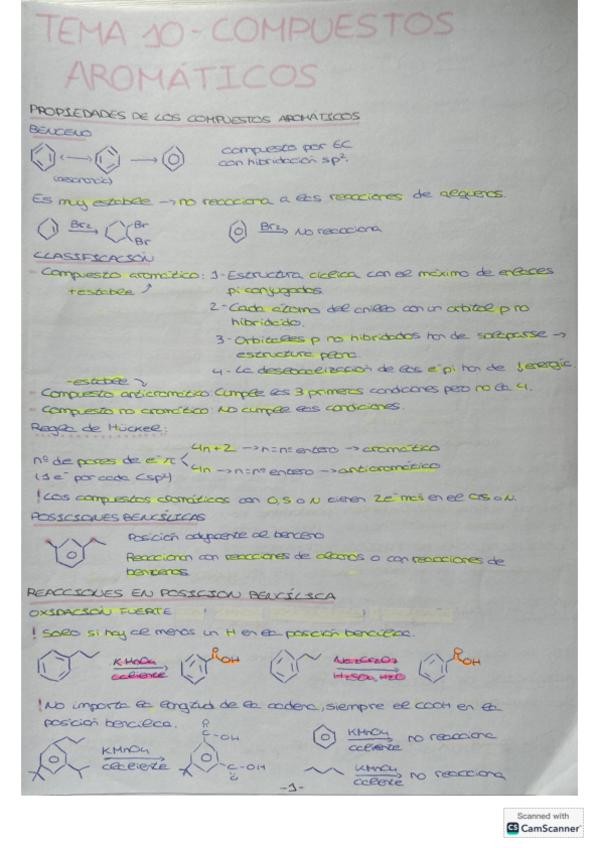 TEMA 10 - COMPUESTOS
AROMÁTICOS
PROPIEDADES DE LOS COMPUESTOS AROMÁTICOS
BENCENO
compuesto por 6C
con hibridación sp²
(resonancia)
Es muy estable → no reacciona a las reacciones de alquenos.
Br₂ Br Br
Br₂ No reacciona
CLASIFICACIÓN
- Compuesto aromático: 1- Estructura cíclica con el máximo de enlaces
+estable pi conjugados.
2- Cada átomo del anillo con un orbital p no
hibridado.
3- Orbitales p no hibridados han de solaparse →
estructura plana.
4- La deslocalización de los e⁻ pi han de ↓energía.
-estable
- Compuesto antiaromático: Cumple las 3 primeras condiciones pero no la 4.
- Compuesto no aromático: No cumple las condiciones.
Regla de Hückel:
4n+2 → n = nº entero → aromático
nº de pares de e⁻ π
4n → n = nº entero → antiaromático
(1 e⁻ por cada C sp²)
! Los compuestos aromáticos con O, S o N tienen 2e⁻ más en el O, S o N.
POSICIONES BENCÍLICAS
Posición adyacente al benceno
Reaccionan con reacciones de alcanos o con reacciones de
bencenos.
REACCIONES EN POSICION BENCÍLICA
OXIDACIÓN FUERTE
! Solo si hay al menos un H en la posición bencílica.
KMnO₄ caliente OH Na₂Cr₂O₇ H₂SO₄, H₂O OH
! No importa la longitud de la cadena, siempre el COOH en la
posición bencílica.
KMnO₄ caliente C-OH C-OH
KMnO₄ caliente no reacciona
KMnO₄ caliente no reacciona
-1-
Scanned with
CS CamScanner